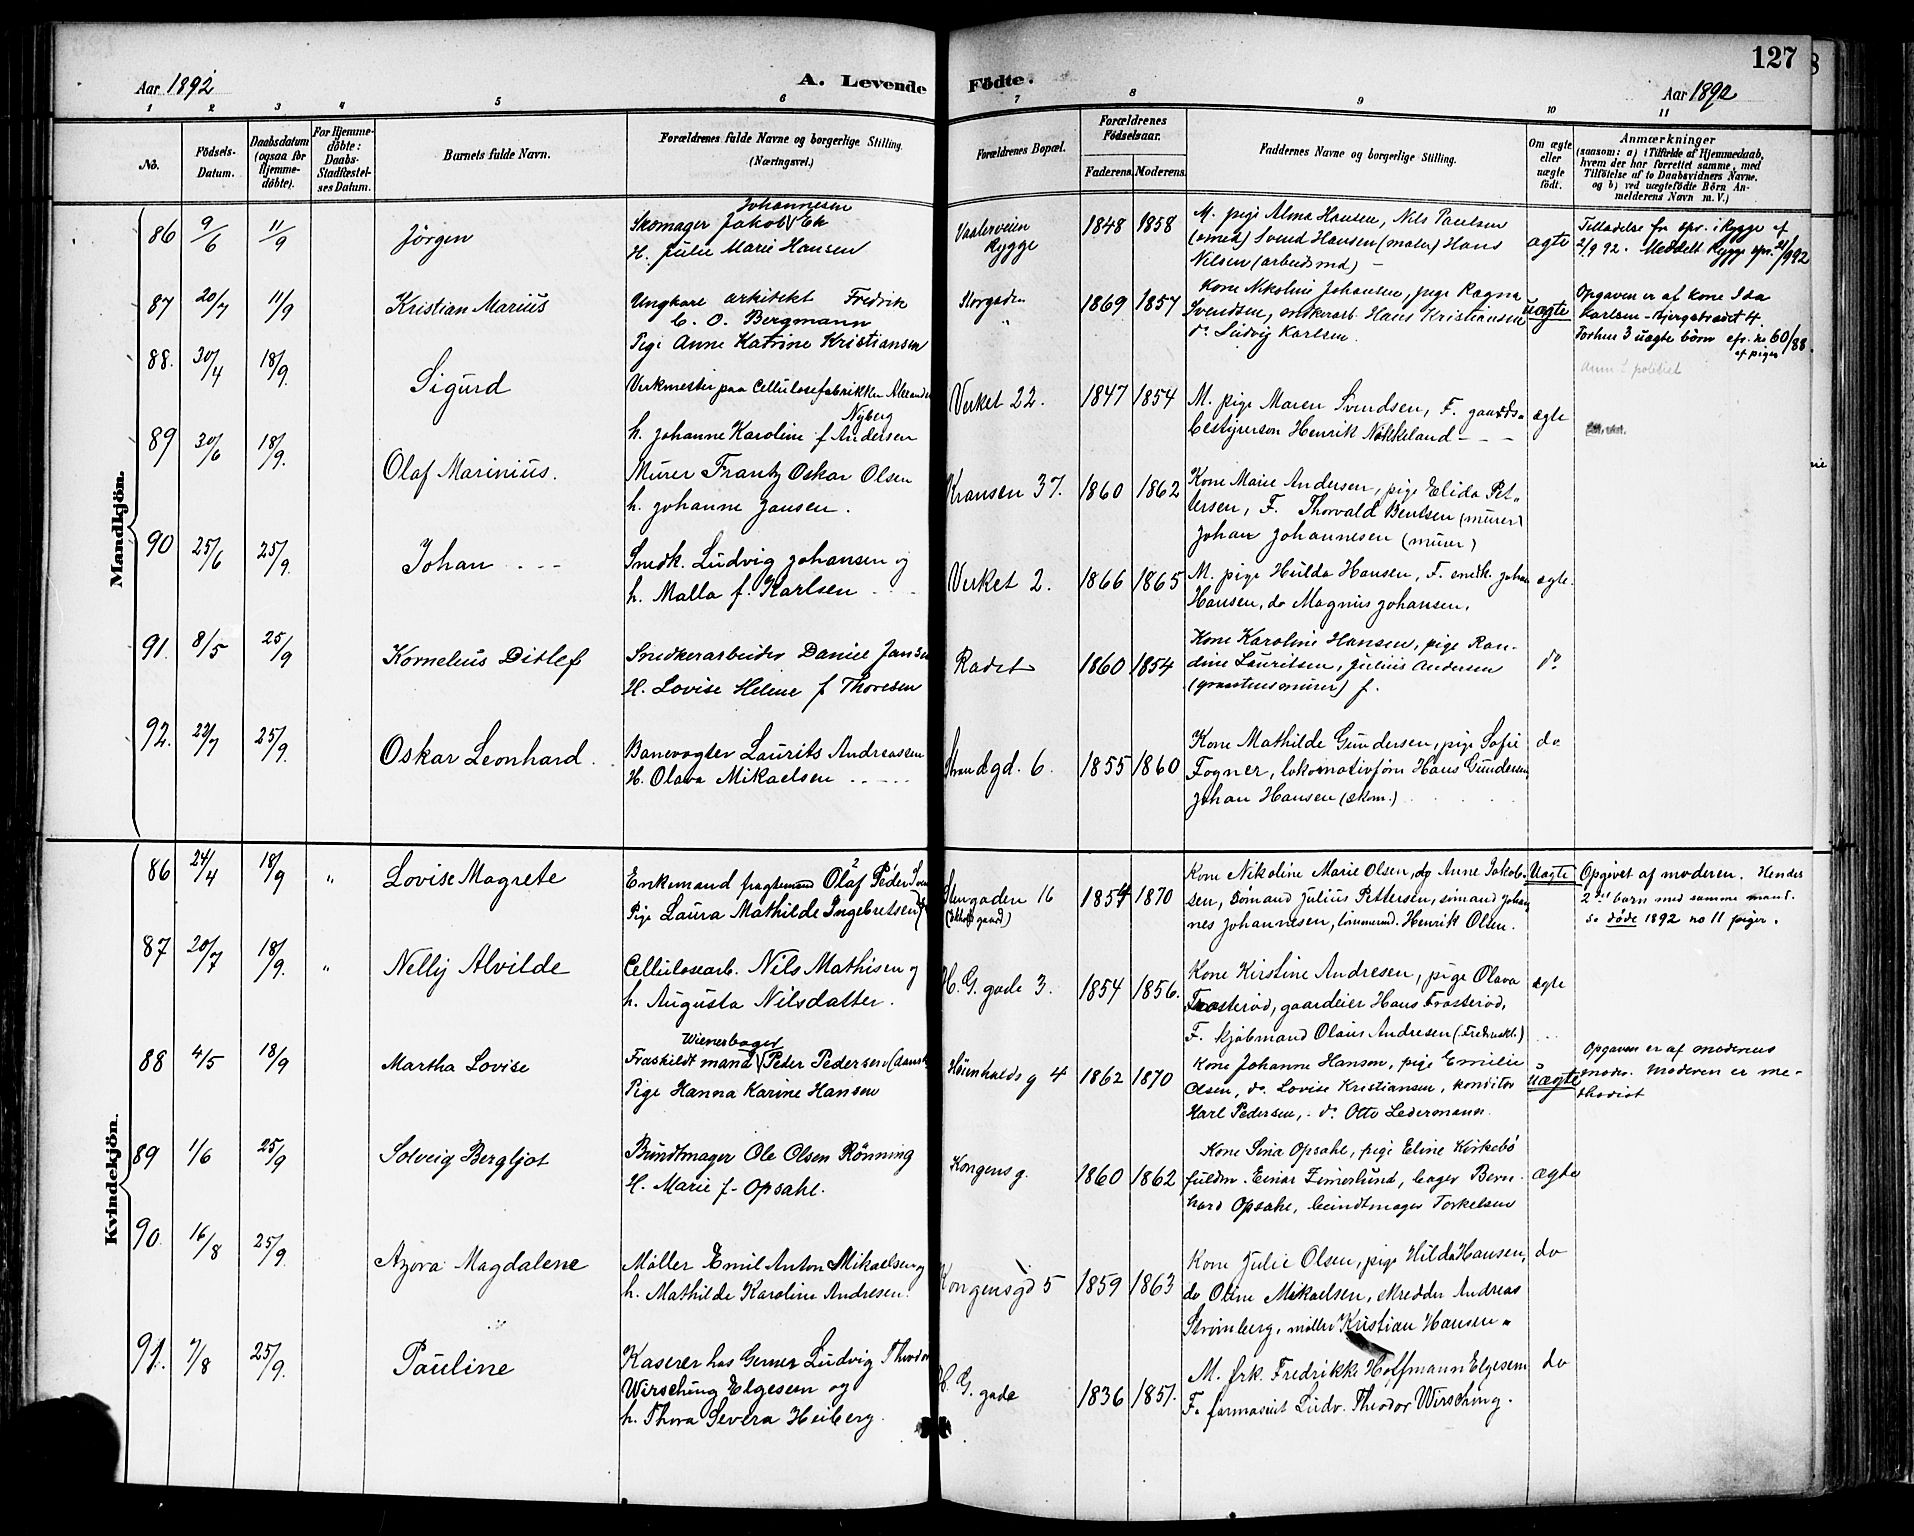 127
Aar 1892
A. Levende Fødte.
Aar 1892
1 2 3 4 5 6 7 8 9 10 11
No.
Fødsels-Datum.
Daabsdatum (ogsaa for Hjemme-døbte).
For Hjemme-døbte: Daabs-Stadfæstel-ses Datum.
Barnets fulde Navn.
Forældrenes fulde Navne og borgerlige Stilling. (Næringsvei.)
Forældrenes Bopæl.
Forældrenes Fødselsaar.
Faderens. Moderens.
Faddernes Navne og borgerlige Stilling.
Om ægte eller uægte født.
Anmærkninger
(saasom: a) i Tilfælde af Hjemmedaab, hvem der har forrettet samme, med Tilføielse af to Daabsvidners Navne, og b) ved uægtefødte Børn An-melderens Navn m. V.)
Mandkjøn.
86 9/6 11/9 Jørgen
Johannesen
Skomager Jakob Ek
H. Julie Marie Hansen
Vaalerveien
Rygge
1848 1858
M. pige Alma Hansen, Nils Paulsen
(smed) Svend Hansen (maler) Hans
Nilsen (arbeidsmd) –
ægte
Tilladelse fra spr. i Rygge af
2/9 92. Meddelt Rygge spr. 21/9 92
87 20/7 11/9 Kristian Marius
Ungkare arkitekt Fredrik
C. O. Bergmann
Pige Anne Katrine Kristiansen
Storgaden
1869 1857
Kone Nikoline Johansen, pige Ragna
Svendsen, snekerarb. Hans Kristiansen
do Ludvig Karlsen.
uægte
Opgaven er af kone Ida
Karlsen - Bjergstrædet 4.
Forhen 3 uægte børn cfr. no 60/88.
af piger
anm. t politiet
88. 30/4 18/9. Sigurd
Verkmester paa Cellulosefabrikken Alexander
Nyberg
h. Johanne Karoline f Andersen
Verket 22.
1847 1854
M. pige Maren Svendsen, F. gaards-
bestyrersøn Henrik Nøkkeland - - -
ægte
89 30/6 18/9. Olaf Marinius.
Murer Frantz Oskar Olsen
h. Johanne Jansen.
Kransen 37.
1860 1862
Kone Marie Andersen, pige Elida Pet-
tersen, F. Thorvald Bentsen (murer)
Johan Johannesen (murer)
90 25/6 25/9. Johan
Snedk. Ludvig Johansen og
h. Malla f. Karlsen
Verket 2.
1866 1865
M. pige Hulda Hansen, F. snedk. Johan
Hansen, do Magnus Johansen.
ægte.
91. 8/5 25/9 Kornelius Ditlef
Snedkerarbeider Daniel Jansen
H. Lovise Helene f Thoresen
Radet
1860 1854
Kone Karoline Hansen, pige Ran-
dine Lauritsen, Julius Andersen
(graastensmurer) f.
do
92. 22/7 25/9. Oskar Leonhard.
Banevogter Laurits Andreassen
H. Olava Mikaelsen
Strandgd. 6.
1855 1860
Kone Mathilde Gundersen, pige Sofie
Fogner, lokomotivfører Hans Gundersen
Johan Hansen (skom.)
do
Kvindekjøn.
86 24/4 18/9 " Lovise Magrete
Enkemand fragtemand Olaf Peder
Pige Laura Mathilde Ingebretsen
Stengaden 16
1854 1870
Kone Nikoline Marie Olsen, do Anne Jakob-
sen, Sømand Julius Pettersen, sømand Johan-
nes Johannesen, tømmermd. Henrik Olsen.
Uægte
Opgivet af moderen. Hendes
2det barn med samme mand.
se døde 1892 no 11 piger.
87 20/7 18/9. " Nelly Alvilde
Cellulosearb. Nils Mathisen og
h. Augusta Nilsdatter.
H. G. gade 3.
1854 1856.
Kone Kirstine Andresen, pige Olava
Frosterød, gaardeier Hans Frosterød,
F. kjøbmand Olaus Andresen (Fredrikst.)
ægte
88 4/5 18/9 Martha Lovise
Wienerbager
Fraskildt mand Peder Pedersen (dansk)
Pige Hanna Karine Hansen
4
1862 1870
Kone Johanne Hansen, pige Emilie
Olsen, do. Lovise Kristiansen, konditor
Karl Pedersen, do Otto Ledermann.
uægte
Opgaven er af moderens
moder. Moderen er me-
thodist
89 1/6 25/9 Solveig Bergljot
Bundtmager Ole Olsen Rønning
H. Marie f. Opsahl.
Kongens g.
1860 1862
Kone Sina Opsahl, pige Eline Kirkebø
fuldm. Einar Zimerlund, bager Bern-
hard Opsahl, bundtmager Torkelsen
ægte
90. 16/8 25/9. Azora Magdalene
Møller Emil Anton Mikaelsen og
h. Mathilde Karoline Andresen.
Kongensgd 5
1859 1863
Kone Julie Olsen, pige Hilda Hansen,
do Oline Mikaelsen, skredder Andreas
Strømberg, møller Kristian Hansen "
do
91. 7/8 25/9. Pauline
Kaserer hos Gerner Ludvig Theodor
Wirsching Elgesem og
h. Thora Severa Heiberg.
H. G. gade
1836 1851.
M. frk. Fredrikke Hoffmann Elgesem
F. farmaceut Ludv. Theodor Wirsching.
do